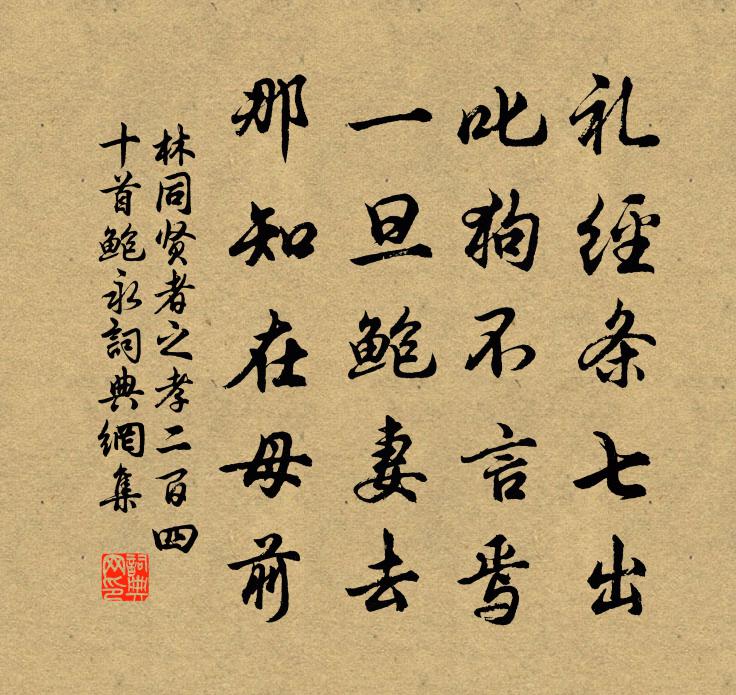 礼經条七出
叱狗不言焉
一旦鲍妻去
那知在母前
林同贤者之孝二百四
十首鲍永詞典網集
詞典
网印